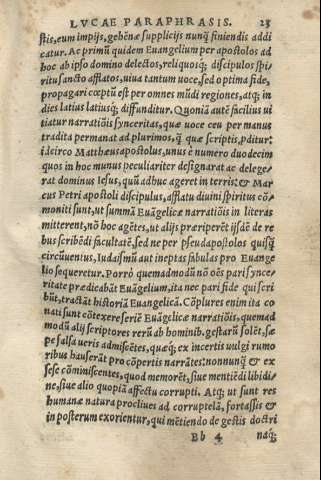 LVCAE PARAPHRASIS. 23
stis, eum impijs, gehēnæ supplicijs nunq̃ finiendis addi
catur. Ac primũ quidem Euangelium per apostolos ad
hoc ab ipso domino delectos, reliquosq; discipulos spi
ritu sancto afflatos, uiua tantum uoce, sed optima fide,
propagari cœptũ est per omnes mũdi regiones, atq; in
dies latius latiusq; diffunditur. Quoniā autē facilius ui
tiatur narratiōis synceritas, quæ uoce ceu per manus
tradita permanat ad plurimos, q̃ quæ scriptis, pditur:
idcirco Matthæus apostolus, unus è numero duodecim
quos in hoc munus peculiariter designarat ac delege-
rat dominus Iesus, quũ adhuc ageret in terris: & Mar
cus Petri apostoli discipulus, afflatu diuini spiritus cō
moniti sunt, ut summā Euāgelicæ narratiōis in literas
mitterent, nō hoc agētes, ut alijs præriperēt ijsdē de re
bus scribēdi facultatē, sed ne per pseudapostolos quisq̃
circũuentus, Iudaismũ aut ineptas fabulas pro Euange
lio sequeretur. Porrò quemadmodũ nō oēs pari synce-
ritate prædicabāt Euāgelium, ita nec pari fide qui scri
bũt, tractāt historiā Euangelicā. Cōplures enim ita co
nati sunt cōtexere seriē Euāgelicæ narratiōis, quemad
modũ alij scriptores rerũ ab hominib. gestarũ solēt, sæ
pe falsa ueris admiscētes, quæq; ex incertis uulgi rumo
ribus hauserāt pro cōpertis narrātes: nonnunq̃ & ex
sese cōminiscentes, quod memorēt, siue mentiēdi libidi
ne, siue alio quopiā affectu corrupti. Atq; ut sunt res
humanæ natura procliues ad corruptelā, fortassis &
in posterum exorientur, qui mētiendo de gestis doctri
Bb 4 naq;